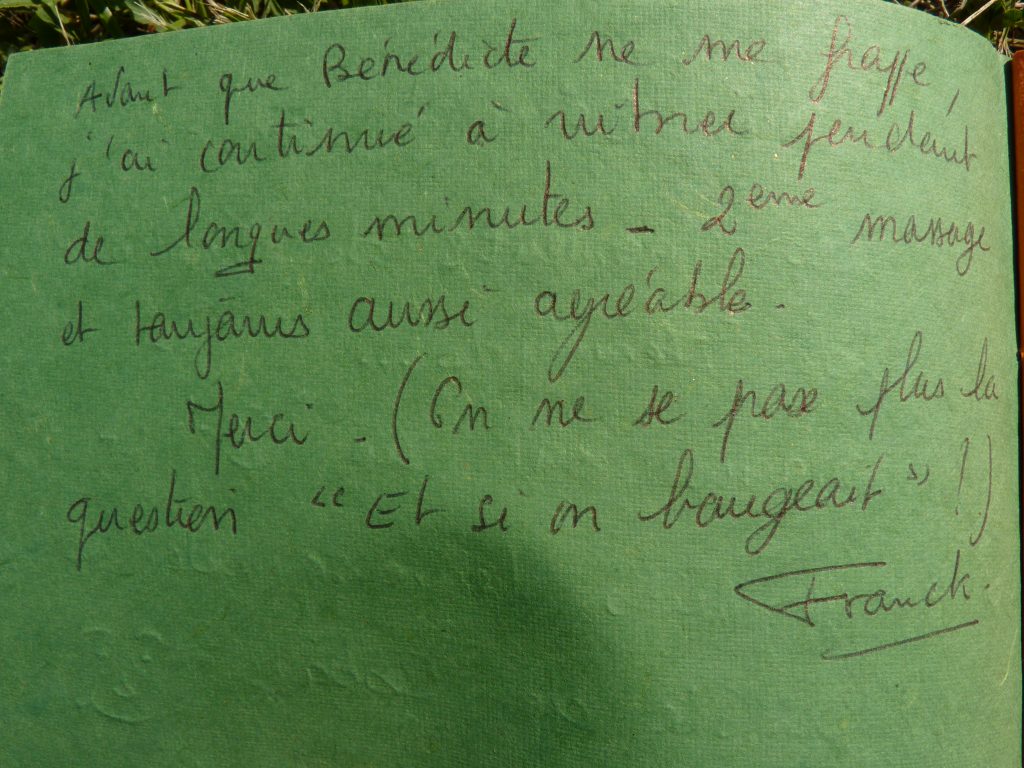 Avant que Bénédicte ne me frappe,
j'ai continué à vibrer pendant
de longues minutes - 2ème massage
et toujours aussi agréable.
Merci. (On ne se pose plus la
question "Et si on bougeait"!)
Franck.